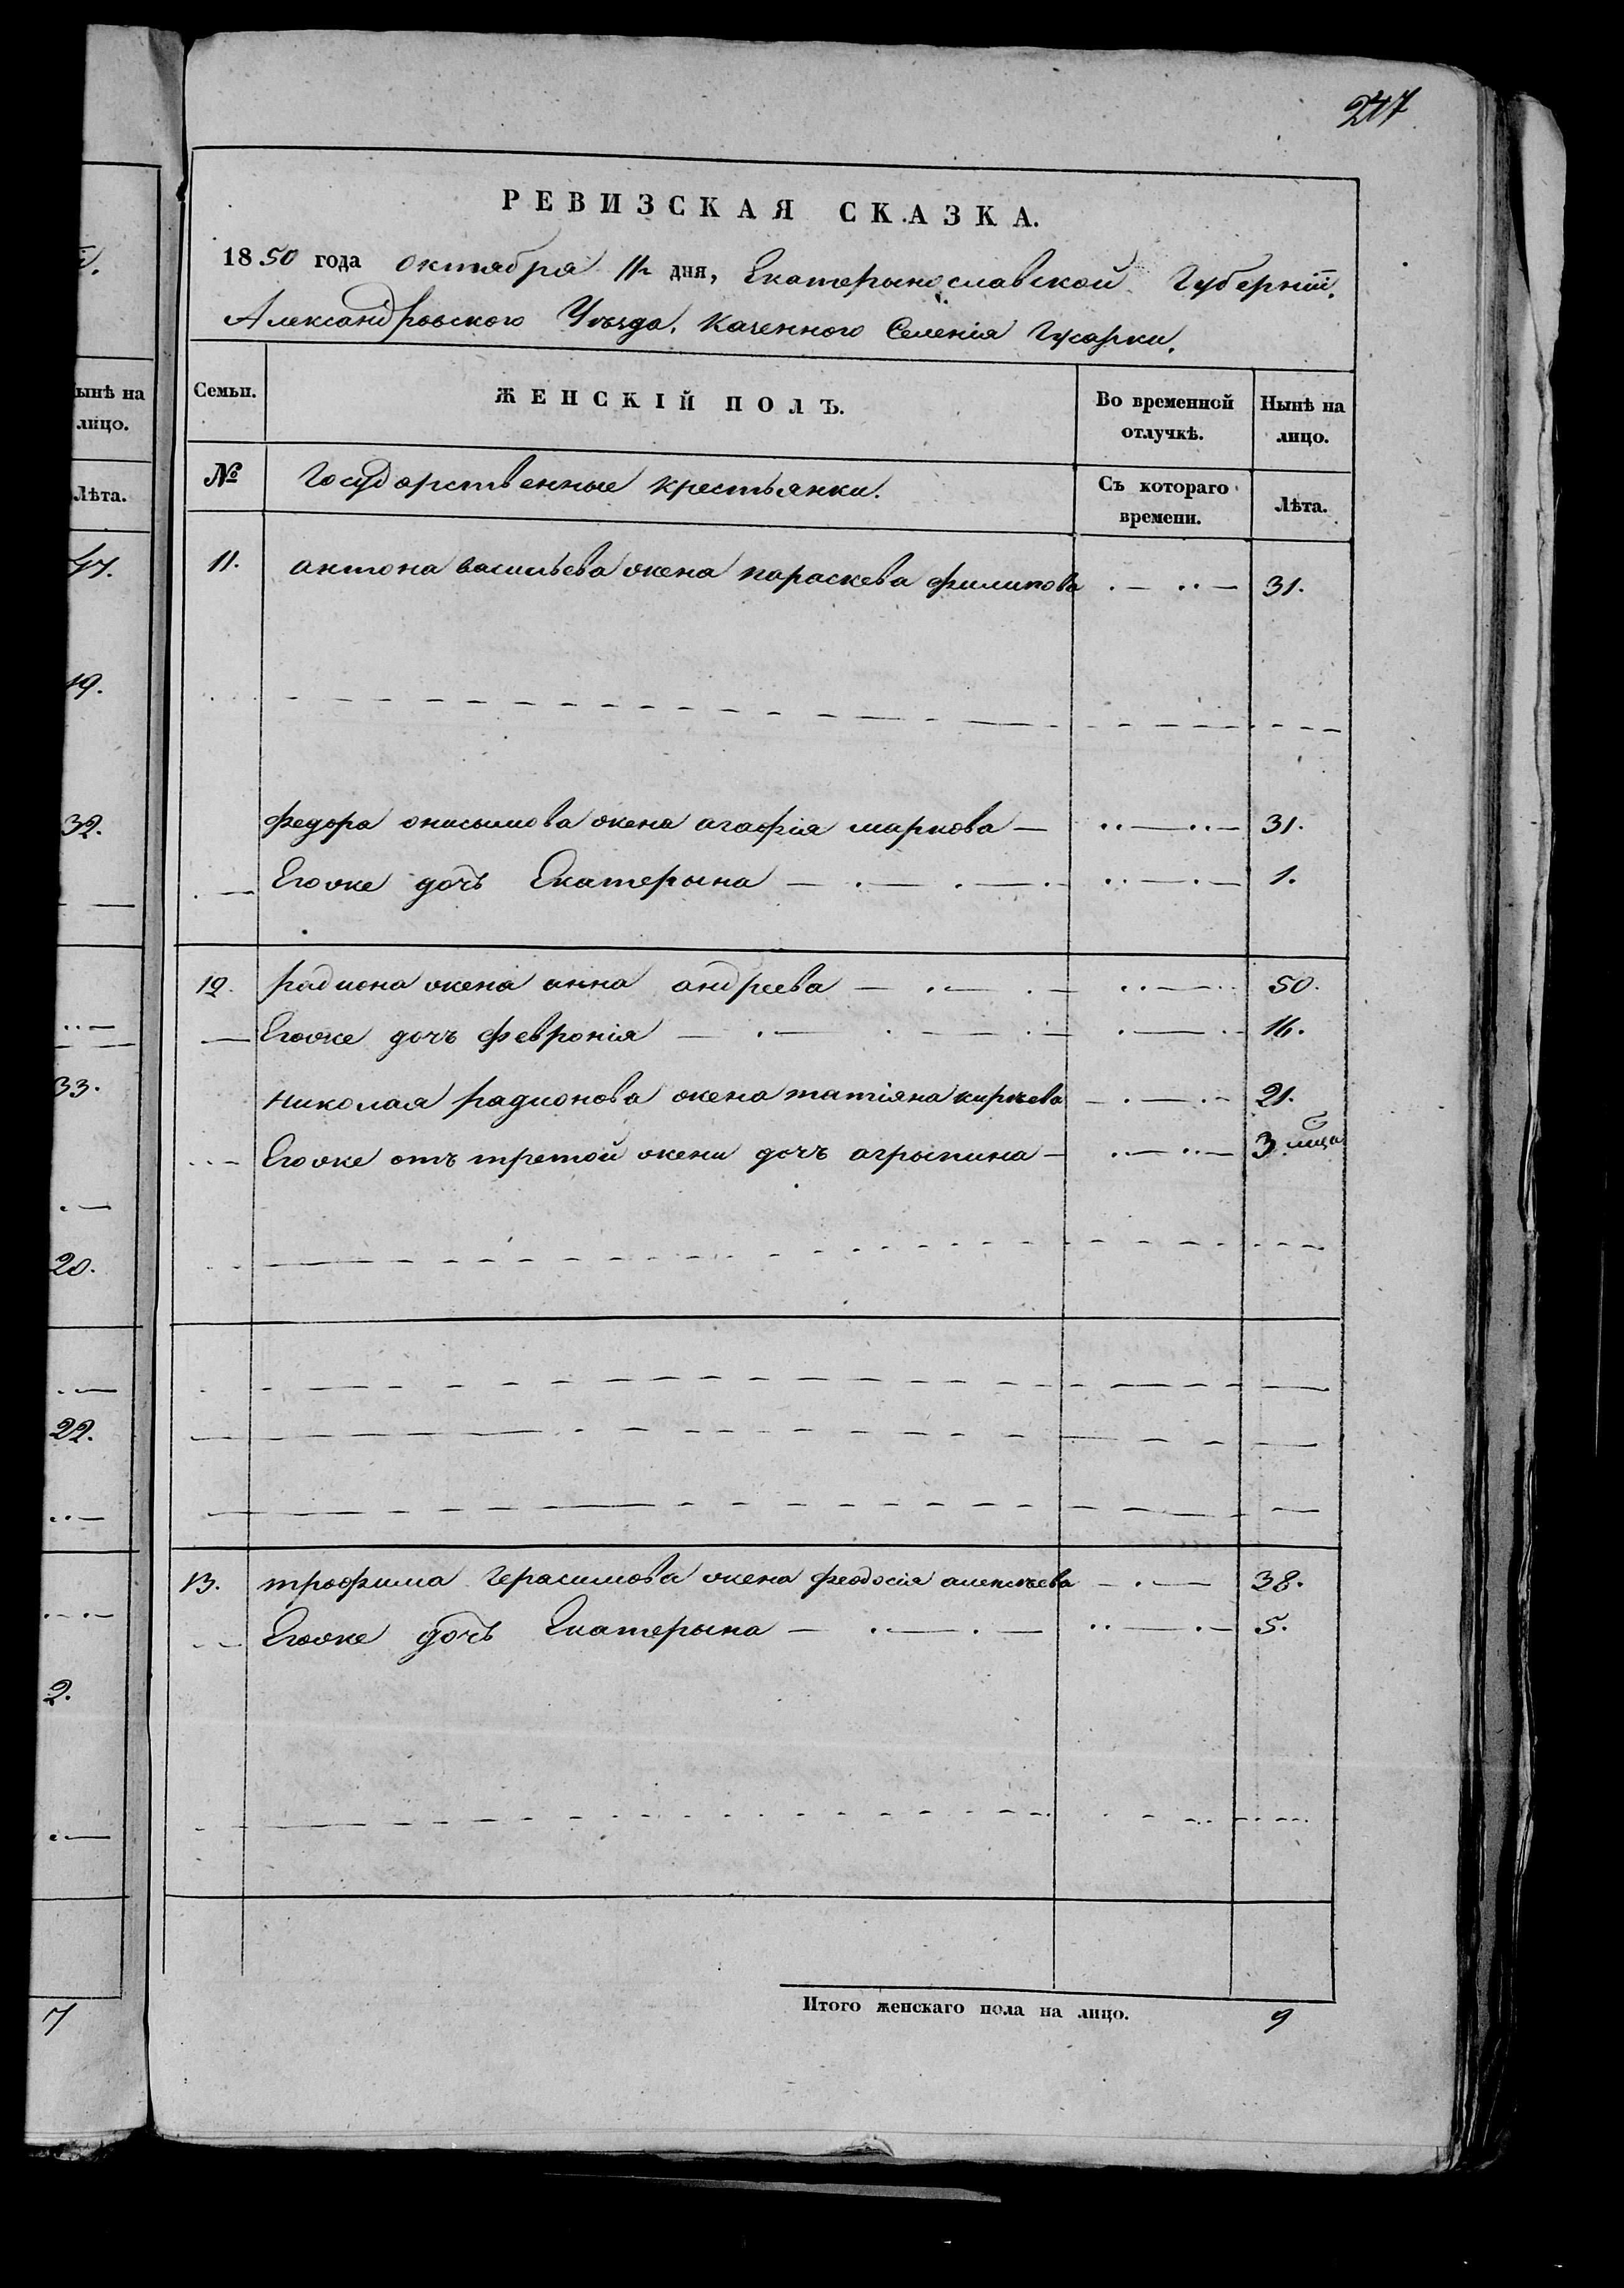 247
РЕВИЗСКАЯ СКАЗКА.
1850 года октября 11 дня, Екатерынославской Губерніи.
Александровского Уѣзда, Казенного Селенія Гусарки.
Семьи. ЖЕНСКІЙ ПОЛЪ. Во временной отлучкѣ. Нынѣ на лицо.
№ Государственные крестьянки. Съ котораго времени. Лѣта.
11. антона васильева жена параскева филипова 31.
федора онисымова жена агафія маркова 31.
Егоже дочь Екатерына 1.
12. радиона жена анна андреева 50.
Егоже дочъ февронія 16.
николая радионова жена татіяна 21.
Егоже отъ третой жени дочъ агрыпина 3
13. трофима Герасимова жена феодосія алексѣева 38.
Егоже дочь Екатерына 5.
Итого женскаго пола на лицо. 9
ынѣ на
лицо.
Лѣта.
47.
19.
32.
33.
20.
22.
2.
7